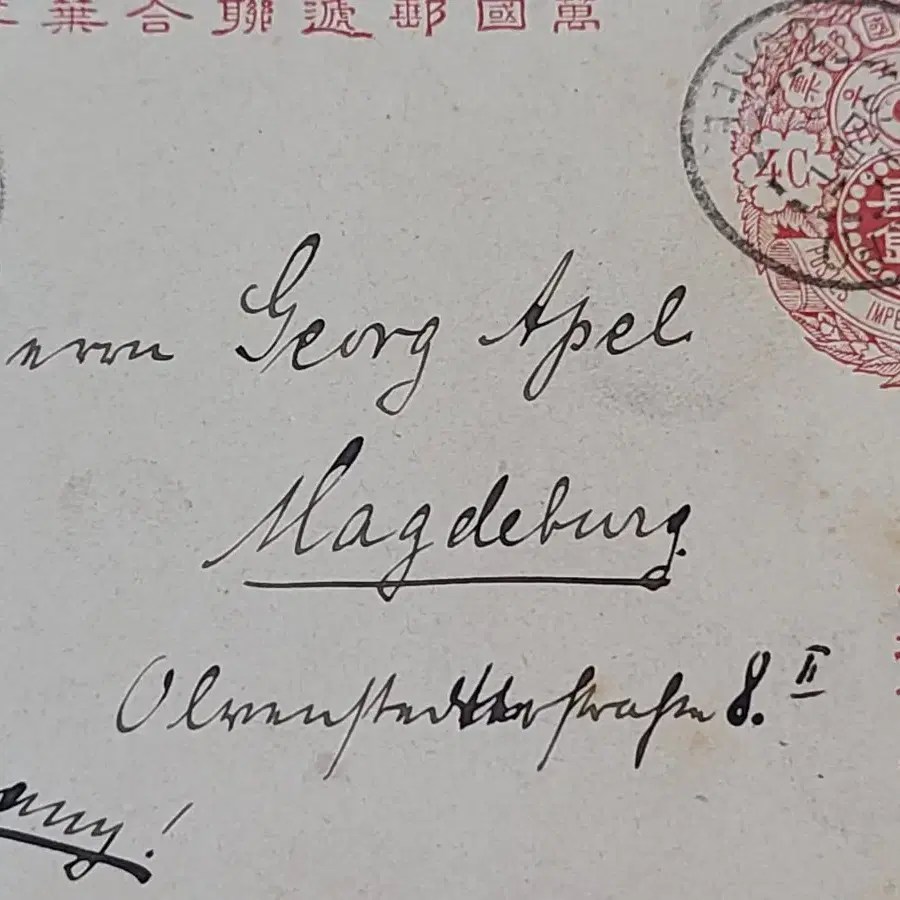 萬國郵遞聯合葉
4C
IMPE
errn Georg Apel
Magdeburg.
Olvenstedterstrasse 8. II
any!